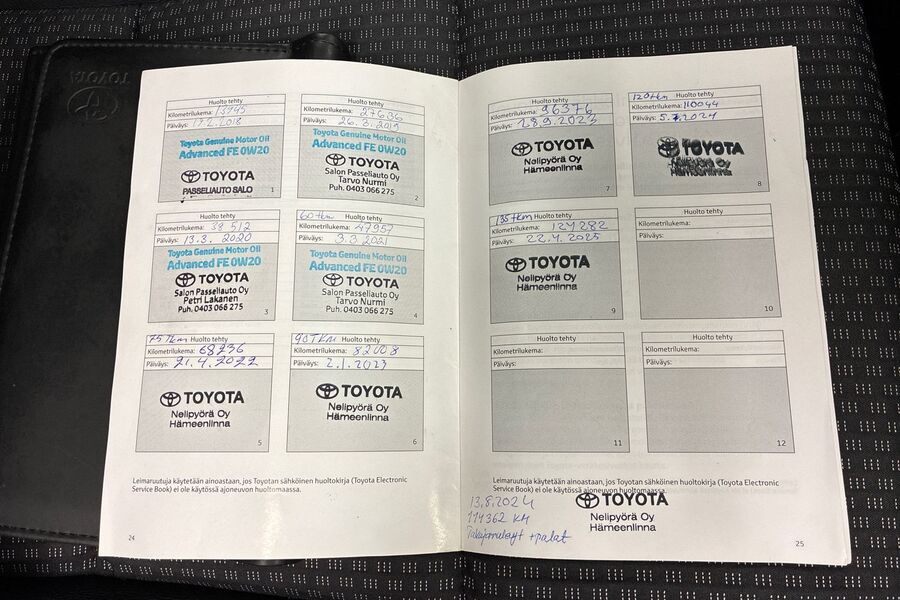 TOYOTA
Huolto tehty
Kilometrilukema: 13945
Päiväys: 17.2.2018
Toyota Genuine Motor Oil
Advanced FE 0W20
TOYOTA
PASSELIAUTO SALO
1
Huolto tehty
Kilometrilukema: 27636
Päiväys: 26.3.2019
Toyota Genuine Motor Oil
Advanced FE 0W20
TOYOTA
Salon Passeliauto Oy
Tarvo Nurmi
Puh. 0403 066 275
2
Huolto tehty
Kilometrilukema: 38 512
Päiväys: 13.3. 2020
Toyota Genuine Motor Oil
Advanced FE 0W20
TOYOTA
Salon Passeliauto Oy
Petri Lakanen
Puh. 0403 066 275
3
60tkm Huolto tehty
Kilometrilukema: 47957
Päiväys: 3.3.2021
Toyota Genuine Motor Oil
Advanced FE 0W20
TOYOTA
Salon Passeliauto Oy
Tarvo Nurmi
Puh. 0403 066 275
4
75Tkm Huolto tehty
Kilometrilukema: 68236
Päiväys: 21.4.2022
TOYOTA
Nelipyörä Oy
Hämeenlinna
5
90TKM Huolto tehty
Kilometrilukema: 82008
Päiväys: 2.1.2023
TOYOTA
Nelipyörä Oy
Hämeenlinna
6
Leimaruutuja käytetään ainoastaan, jos Toyotan sähköinen huoltokirja (Toyota Electronic
Service Book) ei ole käytössä ajoneuvon huoltomaassa.
24
Huolto tehty
Kilometrilukema: 96376
Päiväys: 28.9.2023
TOYOTA
Nelipyörä Oy
Hämeenlinna
7
120tkm Huolto tehty
Kilometrilukema: 110044
Päiväys: 5.7.2024
TOYOTA
Nelipyörä Oy
Hämeenlinna
8
135tkm Huolto tehty
Kilometrilukema: 124282
Päiväys: 22.4.2025
TOYOTA
Nelipyörä Oy
Hämeenlinna
9
Huolto tehty
Kilometrilukema:
Päiväys:
10
Huolto tehty
Kilometrilukema:
Päiväys:
11
Huolto tehty
Kilometrilukema:
Päiväys:
12
Leimaruutuja käytetään ainoastaan, jos Toyotan sähköinen huoltokirja (Toyota Electronic
Service Book) ei ole käytössä ajoneuvon huoltomaassa.
13.8.2024
111362 KM
+palat
TOYOTA
Nelipyörä Oy
Hämeenlinna
25